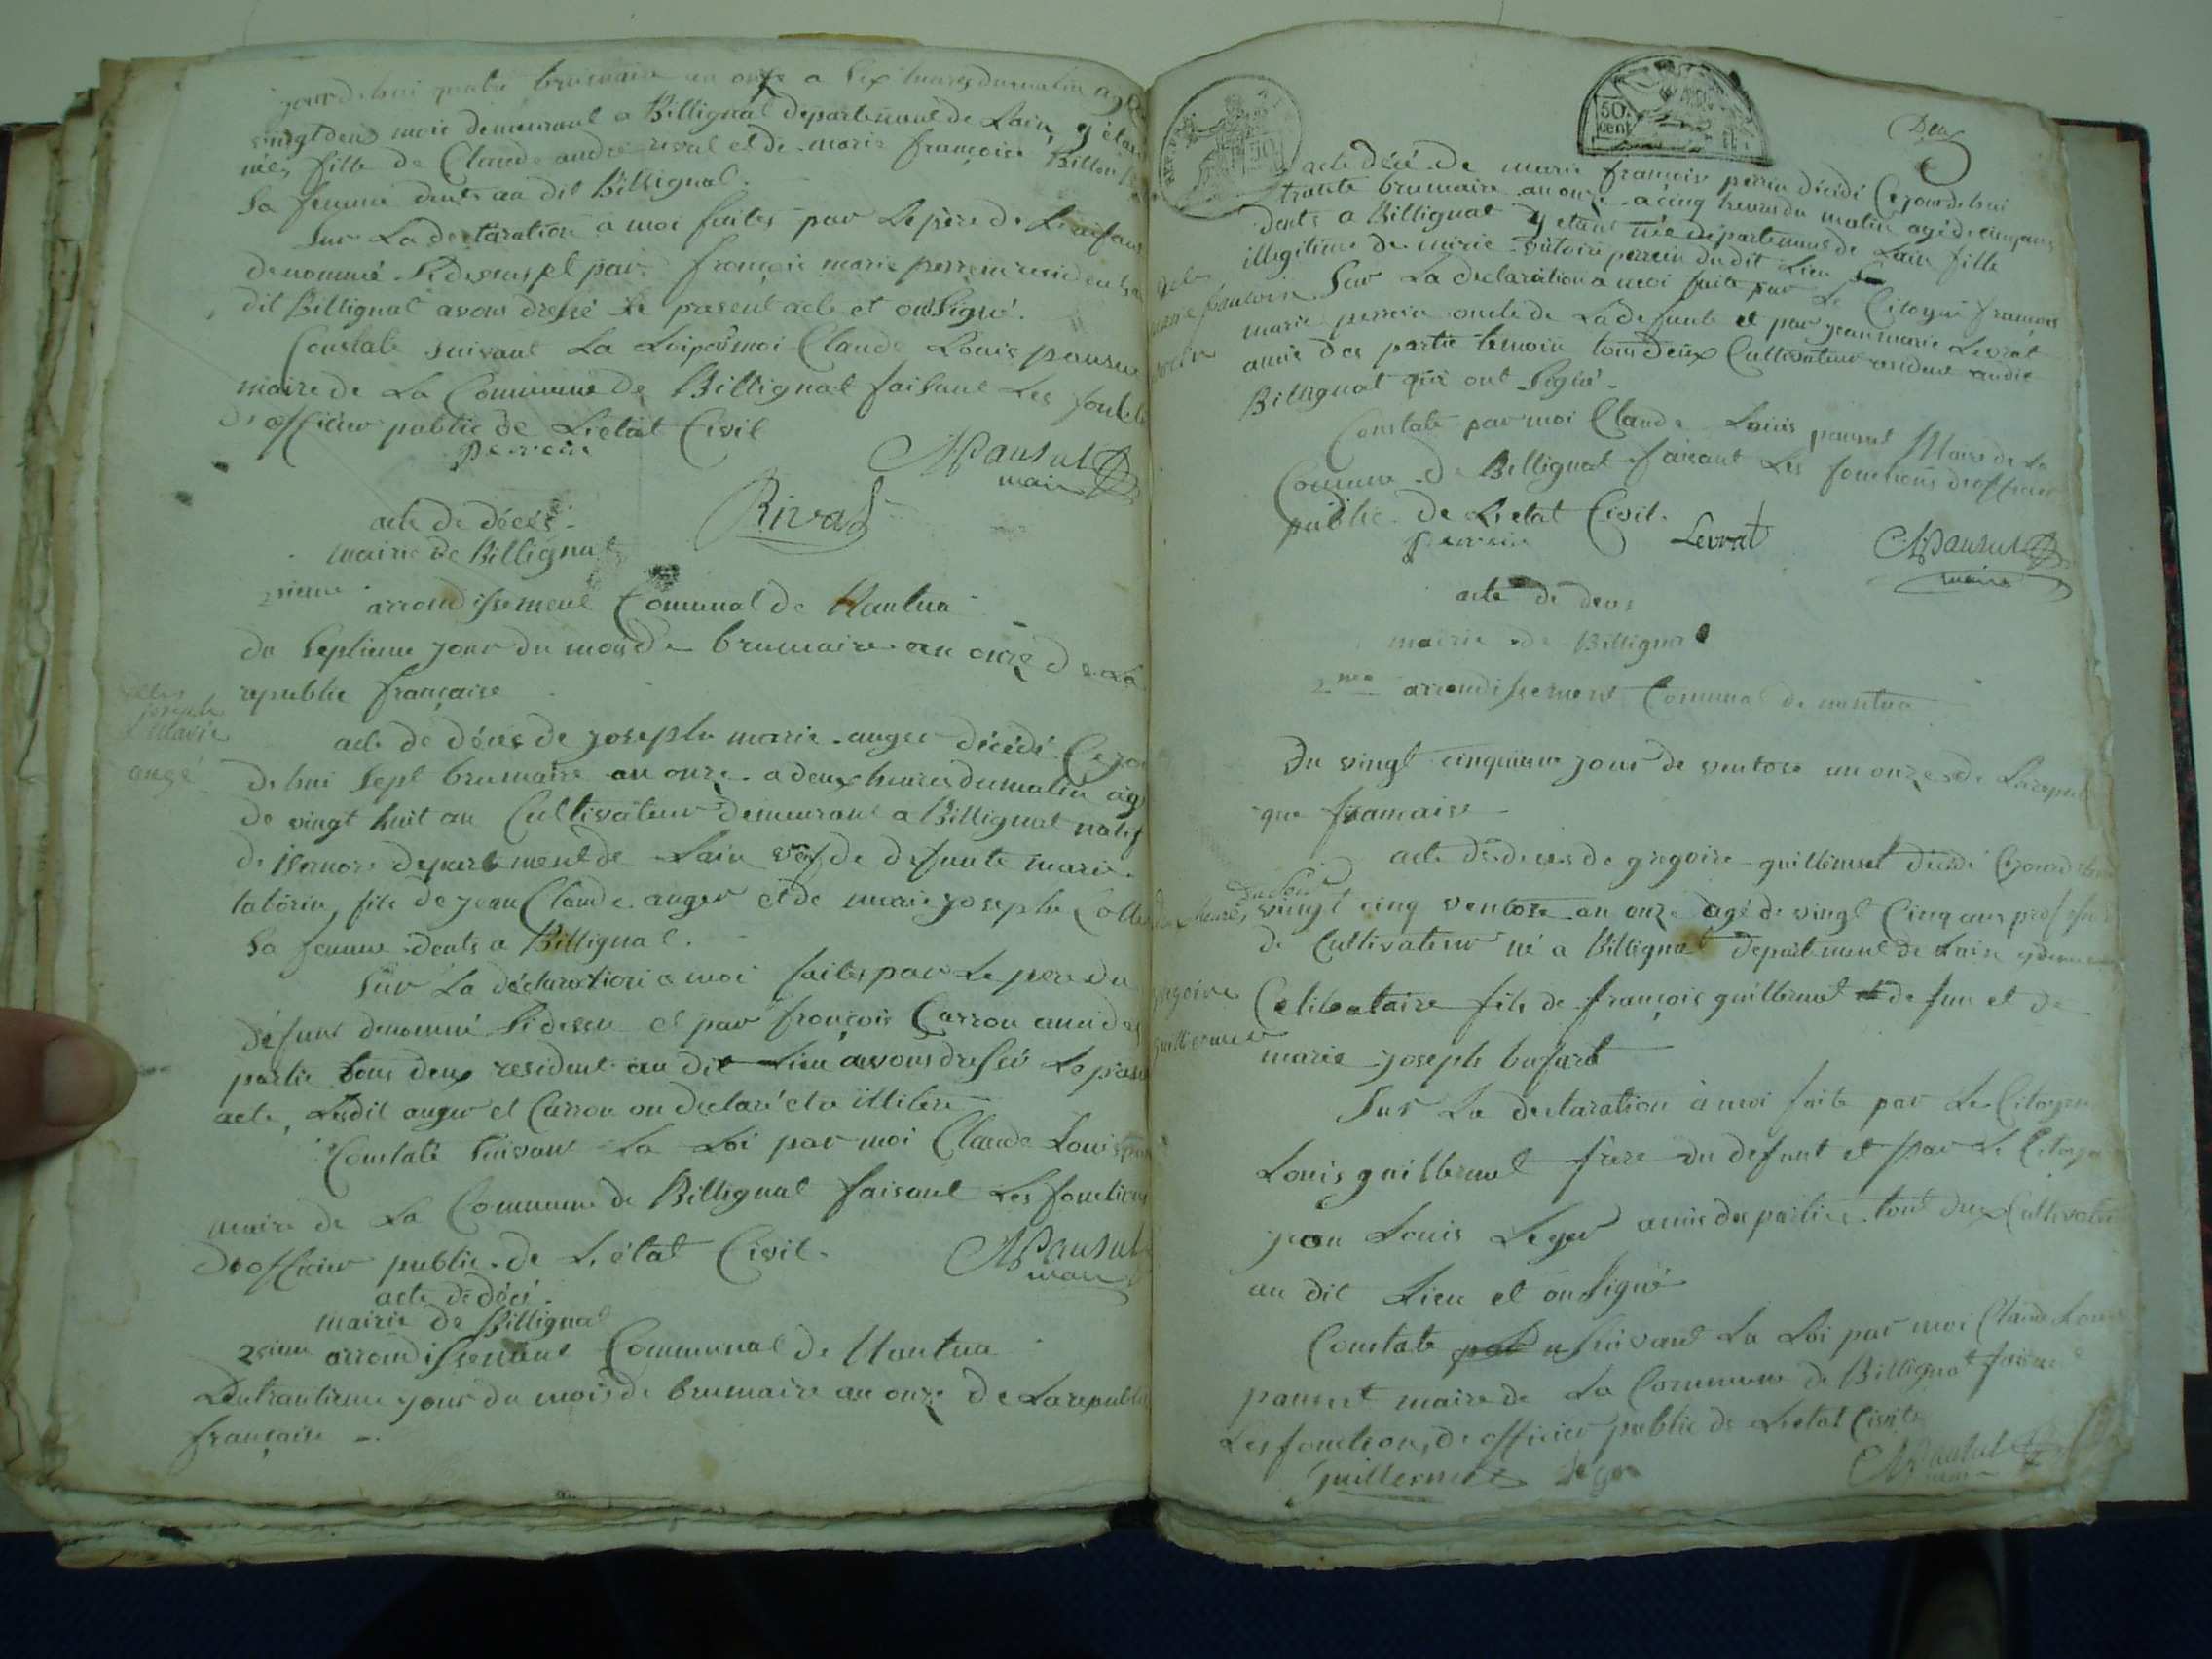 jour d. hui quatre brumaire an onze a six heures du matin agé
vingt deux mois demeurant a Billignat departement de Lain, y etant
née, fille de Claude andré rival et de marie françoise Billon
sa femme dents au dit Billignat.
Sur La declaration a moi faites par Le pere de
denommé et par françois marie perrein
dit Billignat avons dressé le present acte et ont signé.
Constaté suivant La Loi par moi Claude Louis pansut
maire de La Commune de Billignat faisant Les
D'officier public de L'etat Civil
perrein
Pansut
maire
Rival
acte de décés.
mairie de Billignat
2 sieme arrondissement Comunal de Nantua
du septieme jour du mois de brumaire an onze de La
republic française
joseph
marie
angé
acte de décés de joseph marie anger décédé Ce jour
de hui sept brumaire an onze a deux heures du matin agé
de vingt huit an Cultivateur demeurant a Billignat natif
de departement de Lain de defunte marie
fils de jean Claude anger et de marie josephe
sa femme dents a Billignat.
Sur La déclaration a moi faites par Le pere du
défunt denommé et par françois Carron ami des
partie tous deux resident au dit Lieu avons dressé Le present
acte, Lesdit anger et Carron on declaré etre illitere
Constaté suivant La Loi par moi Claude Louis
maire de La Commune de Billignat faisant Les fonctions
D'officier public de L'état Civil.
Pansut
maire
acte de décé.
mairie de Billignat
2 sieme arrondissement Communal de Nantua
Du trantieme jour du mois de brumaire an onze de La republic
française
50
cent
Deux
acte décé de marie françoise perrein décédé Ce jour de hui
trante brumaire an onze a cinq heures du matin agé de cinq ans
dents a Billignat y etant née departement de Lain fille
illegitime de marie victoire perrein du dit Lieu
marie françoise
perrein
Sur La declaration a moi faite par Le Citoyen françois
marie perrein oncle de La defunte et par jean marie Levrat
amis des partie temoin tous deux Cultivateur residant audit
Billignat qui ont signé.
Constaté par moi Claude Louis pansut Maire de La
Commune de Billignat faisant Les fonctions d'officier
public de L'etat Civil.
perrein
Levrat
Pansut
maire
acte de deces
mairie de Billignat
2 me arrondissement Communal de nantua
Du vingt cinquieme jour de ventose an onze de La republi
que francaise
acte de deces de gregoire guillermet décédé Ce jour d hui
vingt cinq ventose an onze agé de vingt Cinq ans profession
de Cultivateur né a Billignat departement de Lain y demeurant
gregoire
guillermet
Celibataire fils de françois guillermet defun et de
marie joseph
Sur La declaration à moi faite par Le Citoyen
Louis guillermet frere du defunt et par Le Citoyen
jean Louis Leger amis des parties tous deux Cultivateur
au dit Lieu et on signé
Constaté suivant La Loi par moi Claude Louis
pansut maire de La Commune de Billignat faisant
Les fonctions, de officier public de L'etat Civil
guillermet
Leger
Pansut